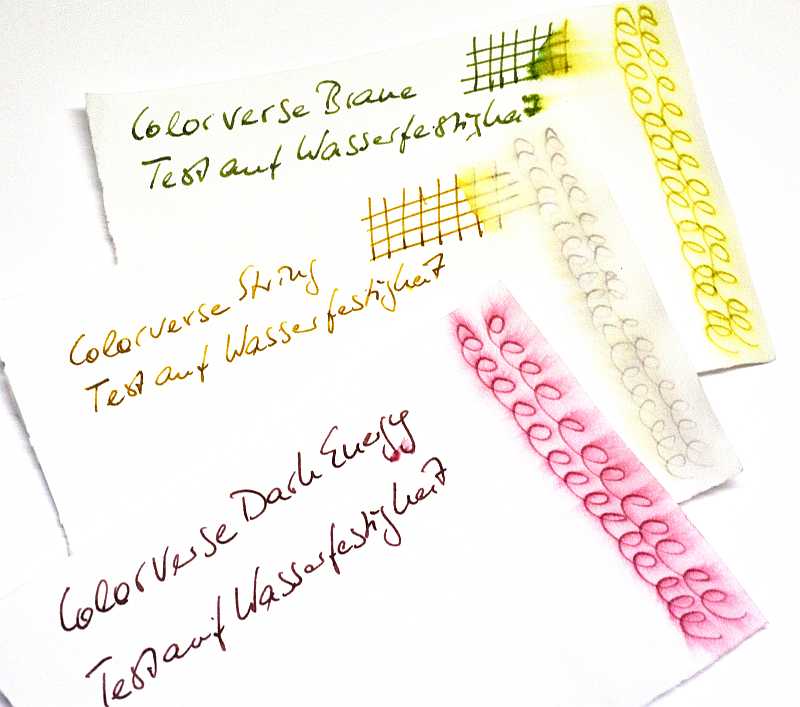 Colorverse Brane
Test auf Wasserfestigkeit
Colorverse String
Test auf Wasserfestigkeit
Colorverse Dark Energy
Test auf Wasserfestigkeit